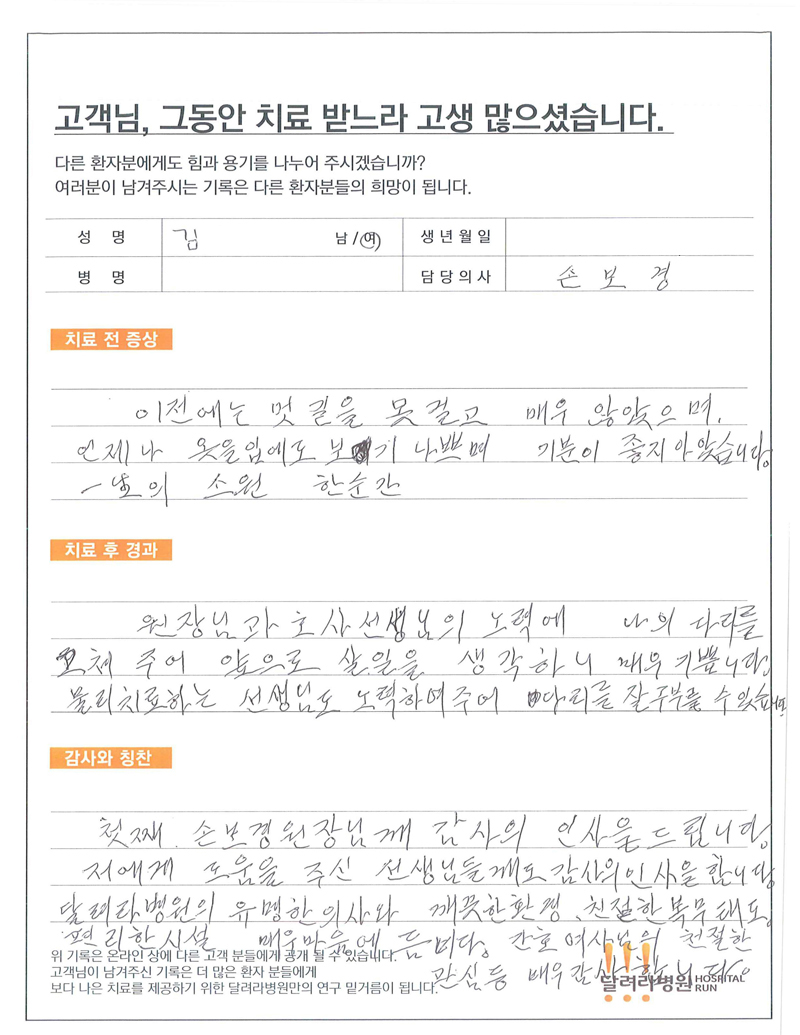 고객님, 그동안 치료 받느라 고생 많으셨습니다.
다른 환자분에게도 힘과 용기를 나누어 주시겠습니까?
여러분이 남겨주시는 기록은 다른 환자분들의 희망이 됩니다.
성 명 김 남 / 여 생년월일
병 명 담당의사 손보경
치료 전 증상
이전에는 멋 길을 못 걸고 매우 않았으며,
언제나 옷을입에도 보기 나쁘며 기분이 좋지아았습니다.
일생의 소원 한순간
치료 후 경과
원장님과 호사선생님의 노력에 나의 다리를
교체 주어 앞으로 살일을 생각하니 매우 기쁩니다.
물리치료하는 선생님도 노력하여주어 다리를 잘 수 있습
감사와 칭찬
첫째. 손보경원장님께 감사의 인사을 드립니다.
저에게 도움을 주신 선생님들께도 감사의인사을합니다
달려라병원의 유명한의사와 깨끗한환경, 친절한복무태도,
편리한시설 매우마음에 듬니다. 간호 여사님의 친절한
관심등 매우감사합니다.
위 기록은 온라인 상에 다른 고객 분들에게 공개 될 수 있습니다.
고객님이 남겨주신 기록은 더 많은 환자 분들에게
보다 나은 치료를 제공하기 위한 달려라병원만의 연구 밑거름이 됩니다.
달려라병원 HOSPITAL RUN